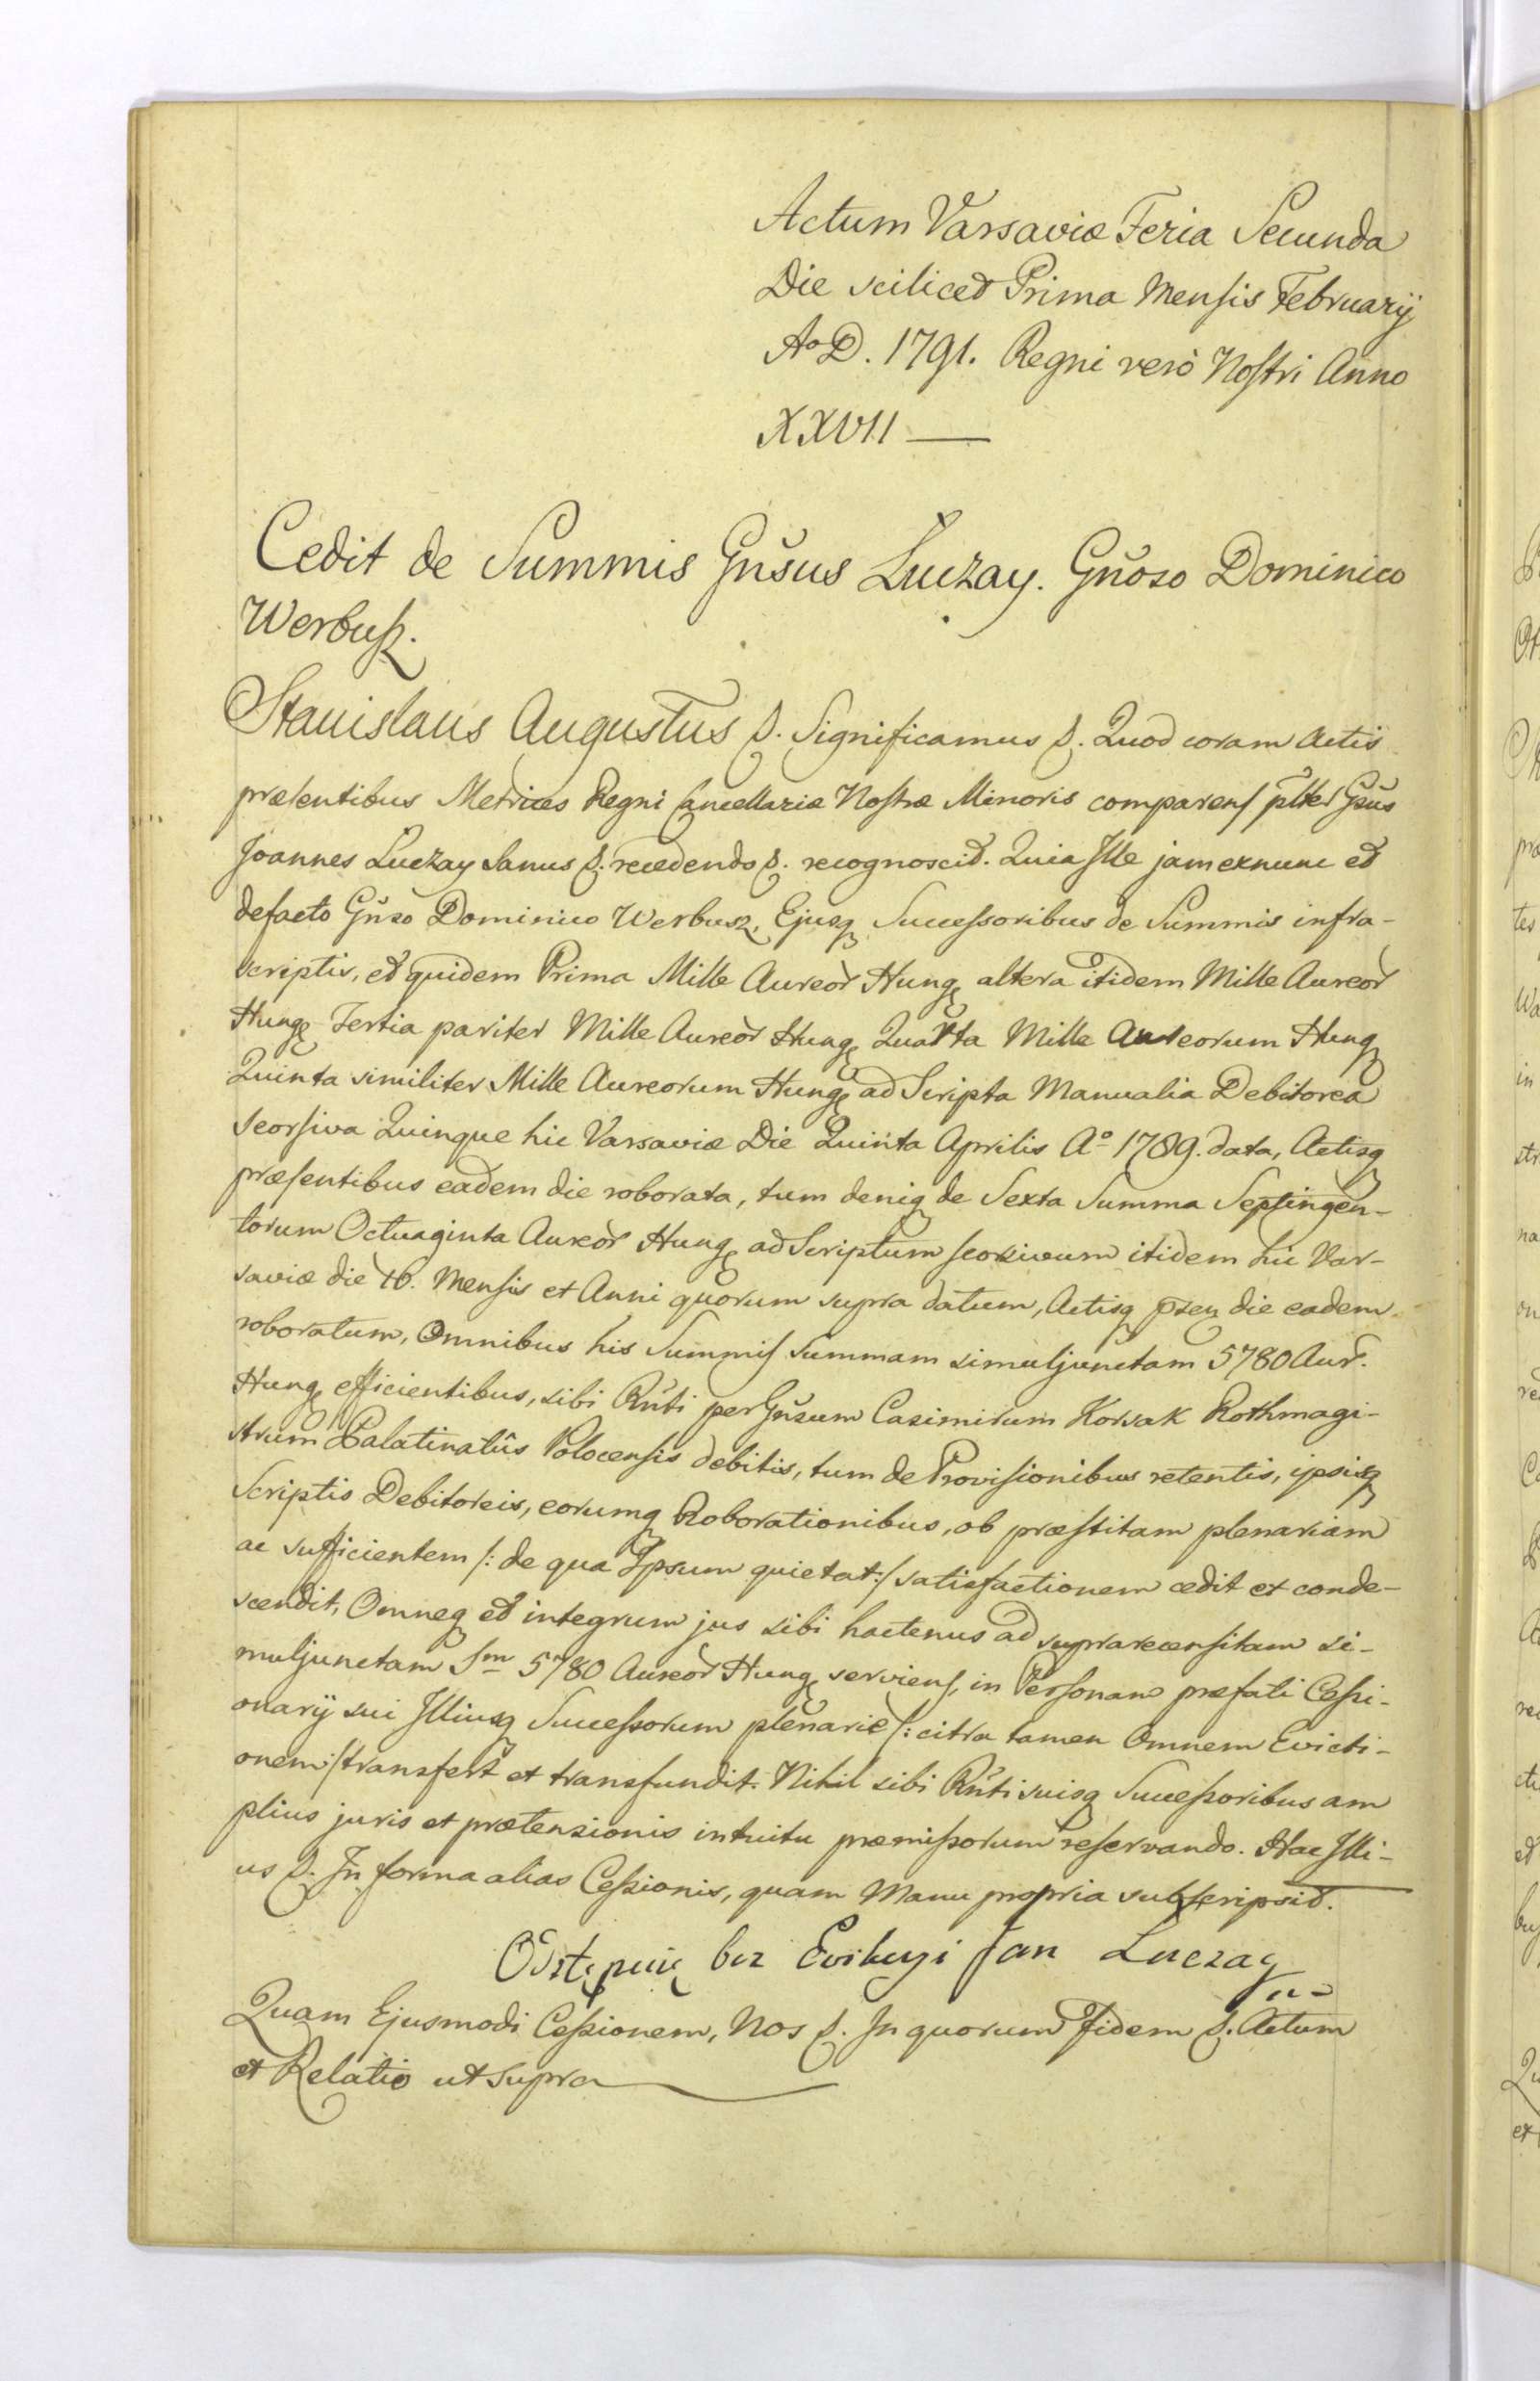 Actum Varsaviæ Feria Secunda
Die scilicet Prima Mensis Februarij
Aº D. 1791. Regni verò Nostri Anno
XXVII —
Cedit de Summis Gnsus Łuczay. Gnoso Dominico
Werbusz.
Stanislaus Augustus &. Significamus &. Quod coram Actis
præsentibus Metrices Regni Cancellariæ Nostræ Minoris comparens pltter Gsus
Joannes Łuczay Sanus &. recedendo &. recognoscit. Quia Ille jam exnunc et
defacto Gnso Dominico Werbusz, Ejusq Successoribus de Summis infra-
scriptis, et quidem Prima Mille Aureor Hung, altera itidem Mille Aureor
Hung, Tertia pariter Mille Aureor Hung, Quarta Mille Aureorum Hung
Quinta similiter Mille Aureorum Hung, ad Scripta Manualia Debitorea
seorsiva Quinque hic Varsaviæ Die Quinta Aprilis Aº 1789. data, Actisq
præsentibus eadem die roborata, tum deniq de Sexta Summa Septingen-
torum Octuaginta Aureor Hung, ad Scriptum seorsivum itidem hic Var-
saviæ die 16. Mensis et Anni quorum supra datum, Actisq pzen die eadem
roboratum, Omnibus his Summis summam simuljunctam 5780 Aur.
Hung, efficientibus, sibi Rnti per Gnsum Casimirum Korsak Rothmagi-
strum Palatinatûs Polocensis debitis, tum de Provisionibus retentis, ipsisq
Scriptis Debitoreis, eorumq Roborationibus, ob præstitam plenariam
ac sufficientem /: de qua Ipsum quietat :/ satisfactionem cedit et conde-
scendit, Omneq et integrum jus sibi hactenus ad suprarecensitam si-
muljunctam Sm 5780 Aureor Hung, serviens, in Personam præfati Cessi-
onarij sui Illiusq Successorum plenarie /: citra tamen Omnem Evicti-
onem :/ transfert et transfundit. Nihil sibi Rnti suisq Successoribus am
plius juris et prætensionis intuitu præmissorum reservando. Hac Illi-
us &. In forma alias Cessionis, quam Manu propria subscripsit.
Odstępuię bez Ewikcyi Jan Łuczay
Quam Ejusmodi Cessionem, Nos &. In quorum Fidem &. Actum
et Relatio ut supra